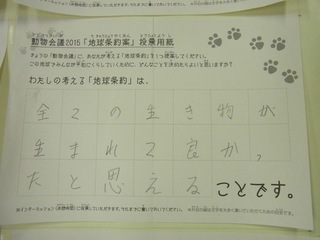 動物会議2015「地球条約案」投票用紙
きょうの「動物会議」に、あなたが考える「地球条約」を1つ提案してください。
この地球でみんながなかよくくらしていくために、どんなことを決めたらよいと思いますか?
わたしの考える「地球条約」は、
全ての生き物が
生まれて良かっ
たと思える ことです。